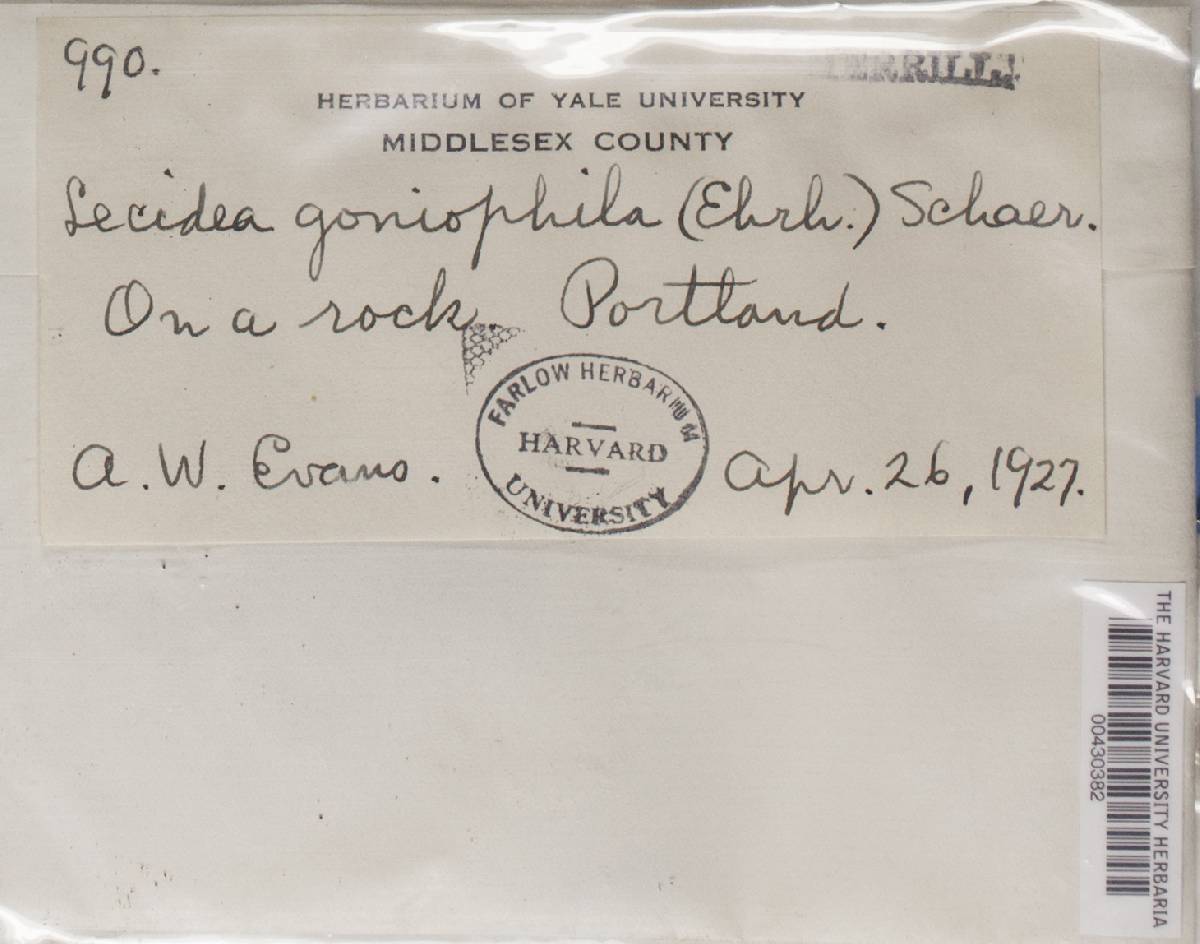 990.
MERRILL
HERBARIUM OF YALE UNIVERSITY
MIDDLESEX COUNTY
Lecidea goniophila (Ehrh.) Schaer.
On a rock. Portland.
FARLOW HERBARIUM
HARVARD
UNIVERSITY
A. W. Evans.
Apr. 26, 1927.
THE HARVARD UNIVERSITY HERBARIA
00430382